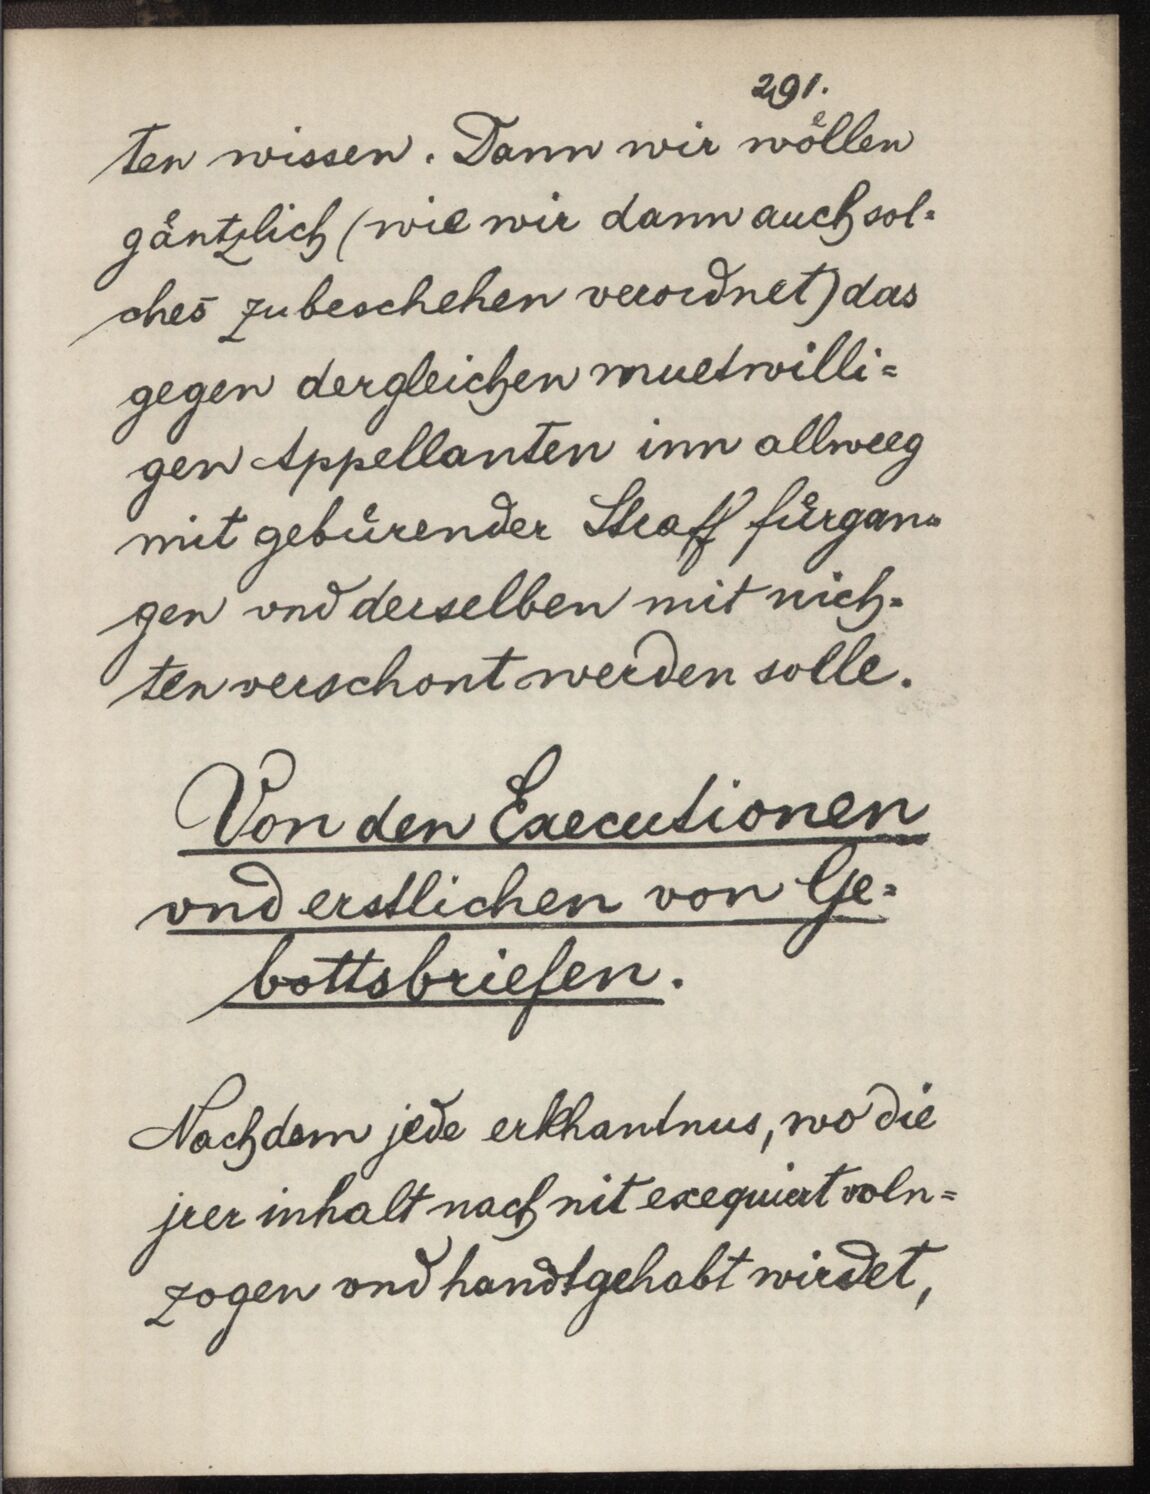 291.
ten wissen. Dann wir wöllen
gäntzlich (wie wir dann auch sol=
ches zubeschehen verordnet) das
gegen dergleichen muetwilli=
gen Appellanten inn allweeg
mit gebürender Straff fürgan=
gen vnd derselben mit nich=
ten verschont werden solle.
Von den Executionen
vnd erstlichen von Ge=
bottsbriefen.
Nachdem jede erkhantnus, wo die
jrer inhalt nach nit exequiert voln=
zogen vnd handtgehabt wirdet,